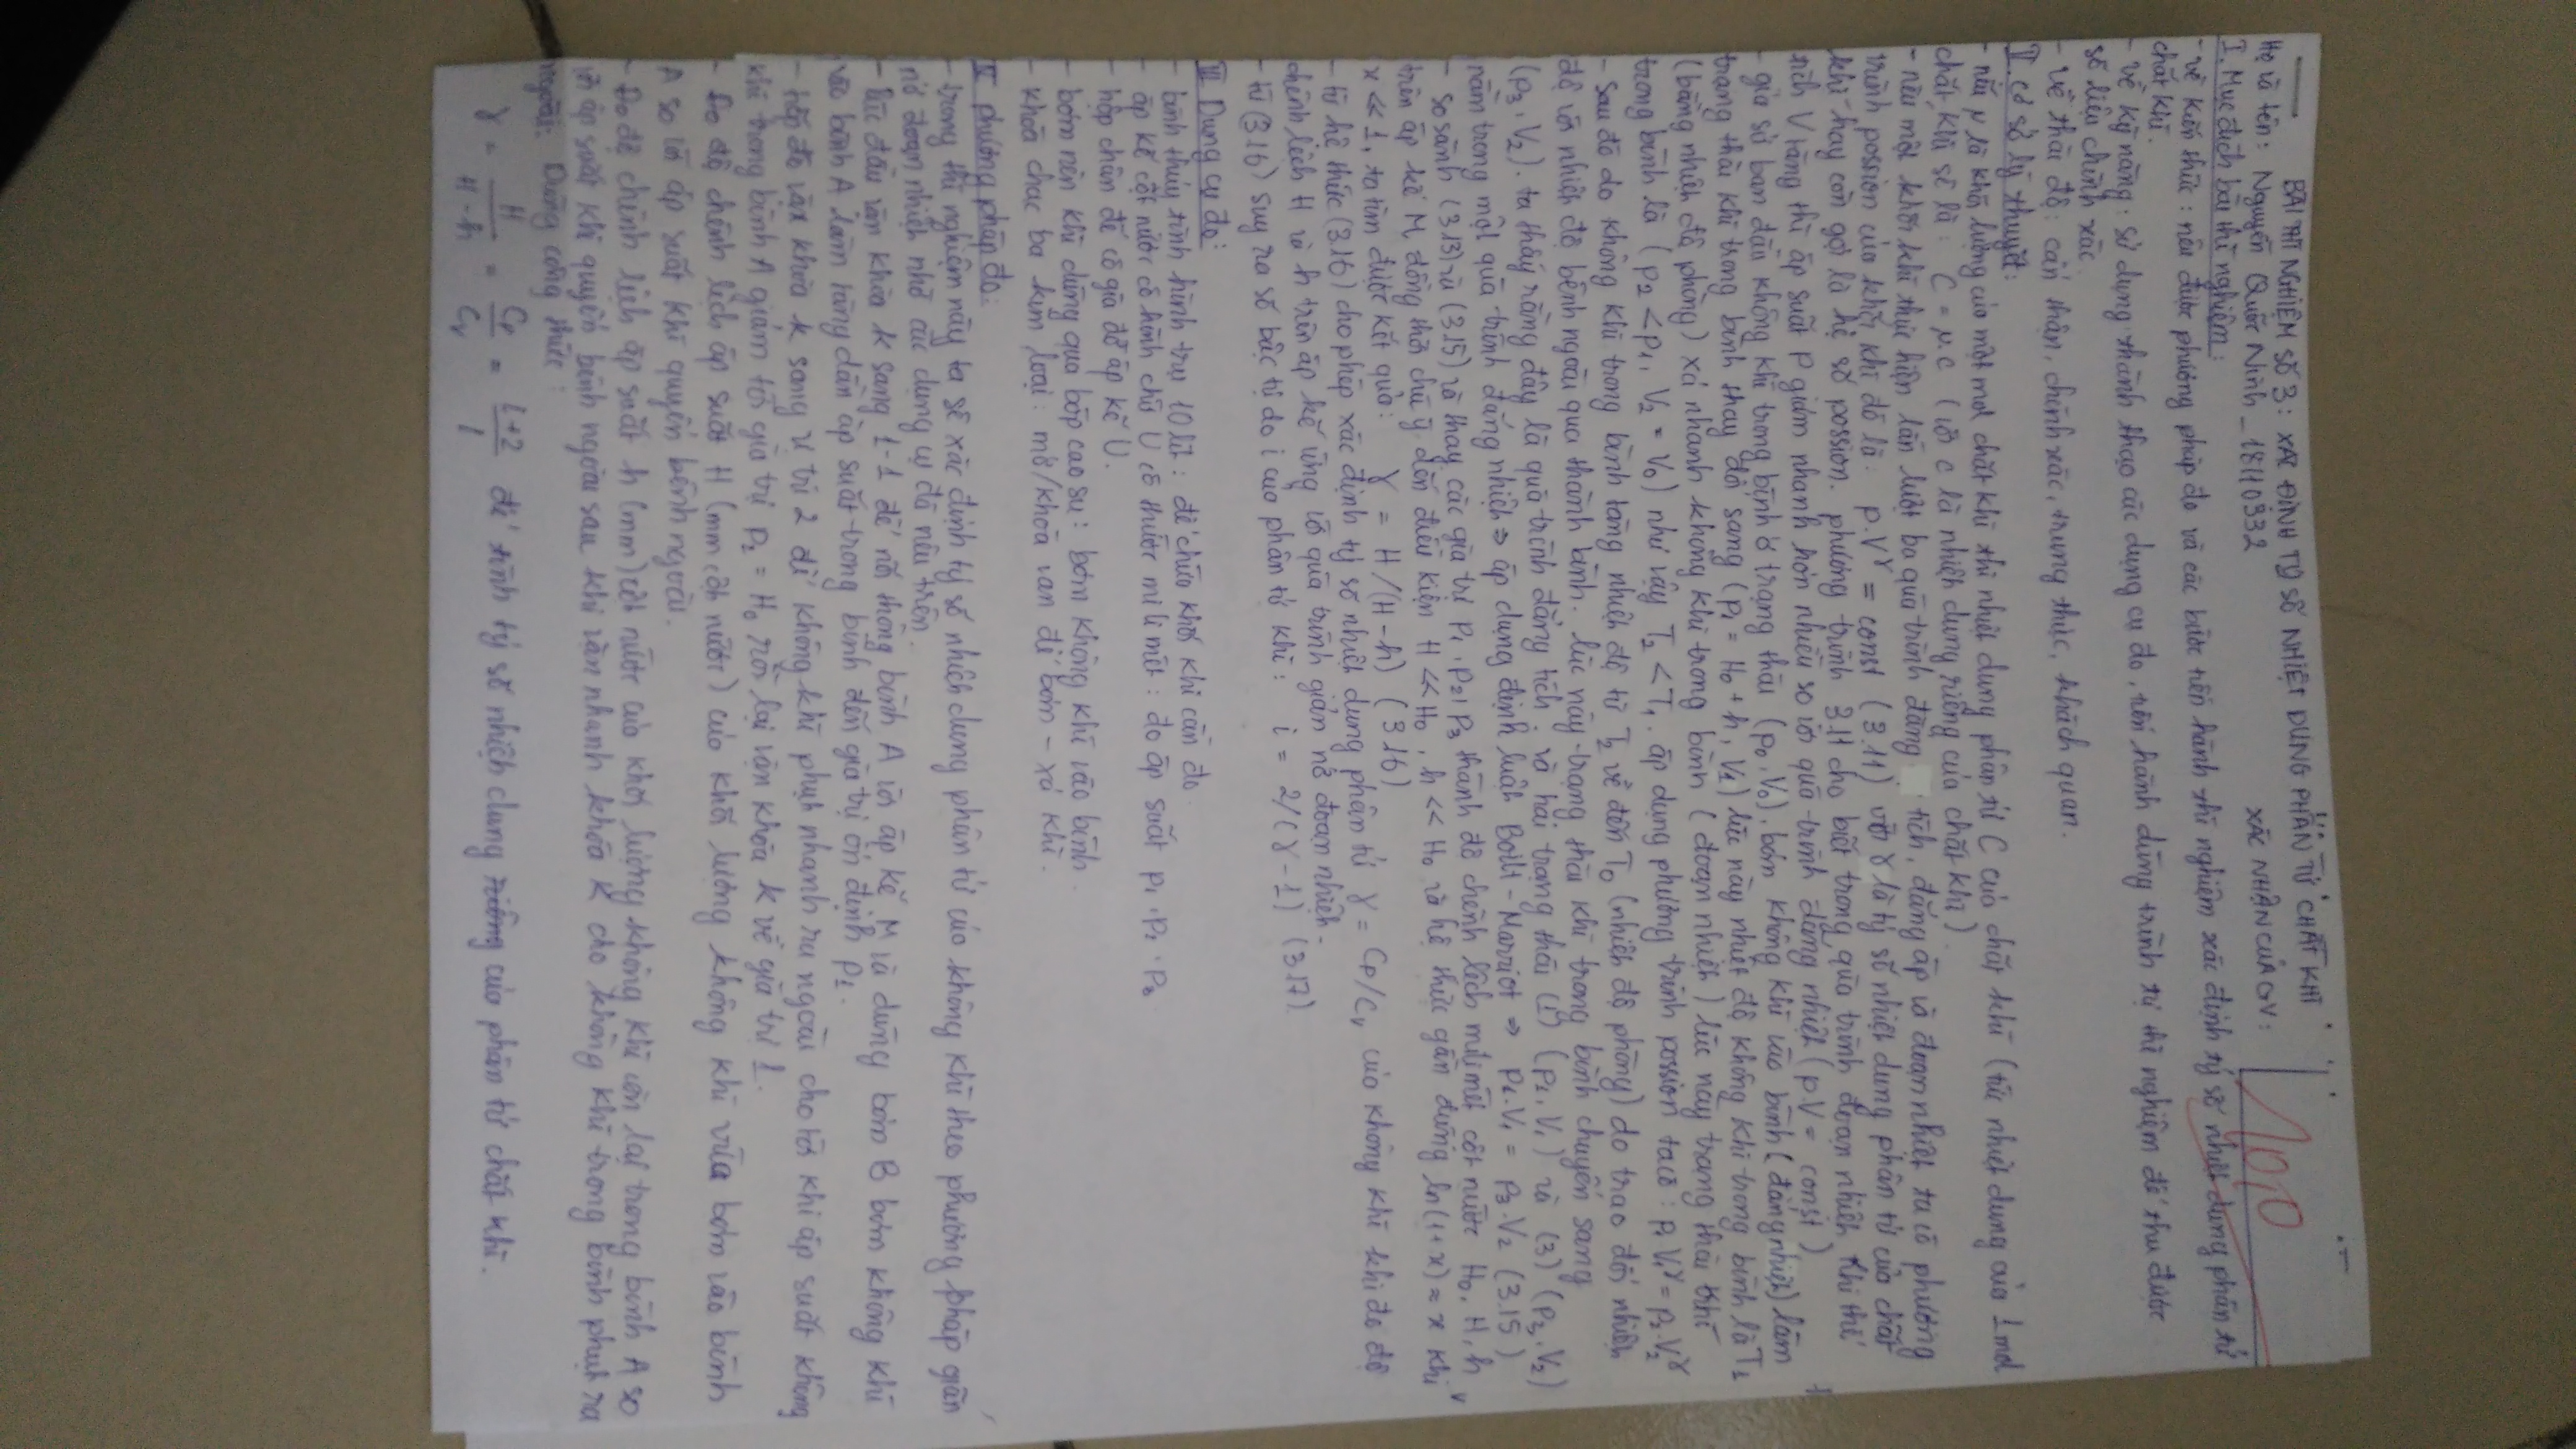 BÀI THÍ NGHIỆM SỐ 3: XÁC ĐỊNH TỶ SỐ NHIỆT DUNG PHÂN TỬ CHẤT KHÍ
10,0
Họ và tên: Nguyễn Quốc Ninh - 18110332
XÁC NHẬN CỦA GV:
I. Mục đích bài thí nghiệm:
- về kiến thức: nêu được phương pháp đo và các bước tiến hành thí nghiệm xác định tỷ số nhiệt dung phân tử
chất khí.
- về kỹ năng: sử dụng thành thạo các dụng cụ đo, tiến hành đúng trình tự thí nghiệm để thu được
số liệu chính xác.
- về thái độ: cẩn thận, chính xác, trung thực, khách quan.
II. cơ sở lý thuyết:
- nếu μ là khối lượng của một mol chất khí thì nhiệt dung phân tử C của chất khí (tức nhiệt dung của 1 mol
chất khí sẽ là: C = μ.c (với c là nhiệt dung riêng của chất khí)
- nếu một khối khí thực hiện lần lượt ba quá trình đẳng tích, đẳng áp và đoạn nhiệt ta có phương
trình possion của khối khí đó là: p.V^γ = const (3.11) với γ là tỷ số nhiệt dung phân tử của chất
khí hay còn gọi là hệ số possion. phương trình 3.11 cho biết trong quá trình đoạn nhiệt khi thể
tích V tăng thì áp suất P giảm nhanh hơn nhiều so với quá trình đẳng nhiệt (p.V = const)
- giả sử ban đầu không khí trong bình ở trạng thái (p₀, V₀). bơm không khí vào bình (đẳng nhiệt) làm
trạng thái khí trong bình thay đổi sang (p₁ = H₀ + h, V₁) lúc này nhiệt độ không khí trong bình là T₁
(bằng nhiệt độ phòng) xả nhanh không khí trong bình (đoạn nhiệt) lúc này trạng thái khí
trong bình là (p₂ < p₁, V₂ = V₀) như vậy T₂ < T₁. áp dụng phương trình possion ta có: p₁V₁^γ = p₂.V₂^γ
- Sau đó do không khí trong bình tăng nhiệt độ từ T₂ về đến T₀ (nhiệt độ phòng) do trao đổi nhiệt
độ với nhiệt độ bênh ngoài qua thành bình. lúc này trạng thái khí trong bình chuyển sang
(p₃, V₂). ta thấy rằng đây là quá trình đẳng tích. và hai trạng thái (1) (p₁, V₁) và (3) (p₃, V₂)
nằm trong một quá trình đẳng nhiệt ⇒ áp dụng định luật Boilt - Marriot ⇒ p₁.V₁ = p₃.V₂ (3.15)
- so sánh (3.13) và (3.15) và thay các giá trị p₁, p₂, p₃ thành độ chênh lệch milimét cột nước H₀, H, h
trên áp kế M, đồng thời chú ý đến điều kiện H << H₀, h << H₀ và hệ thức gần đúng ln(1+x) ≈ x khi
x << 1, ta tìm được kết quả: γ = H/(H-h) (3.16)
- từ hệ thức (3.16) cho phép xác định tỷ số nhiệt dung phân tử γ = Cp/Cv của không khí khi đo độ
chênh lệch H và h trên áp kế ứng với quá trình giản nở đoạn nhiệt.
- từ (3.16) suy ra số bậc tự do i của phân tử khí: i = 2/(γ-1) (3.17)
III Dụng cụ đo:
- bình thủy tinh hình trụ 10 lít: để chứa khối khí cần đo
- áp kế cột nước có hình chữ U có thước mi li mét: đo áp suất p₁, p₂, p₃
- hộp chân đế có giá đỡ áp kế U.
- bơm nén khí dùng quả bóp cao su: bơm không khí vào bình
- khóa chạc ba kim loại: mở/khóa van để bơm - xả khí.
IV phương pháp đo:
- trong thí nghiệm này ta sẽ xác định tỷ số nhiệt dung phân tử của không khí theo phương pháp giãn
nở đoạn nhiệt nhờ các dụng cụ đã nêu trên.
- lúc đầu vặn khóa k sang 1-1 để nối thông bình A với áp kế M và dùng bơm B bơm không khí
vào bình A làm tăng dần áp suất trong bình đến giá trị ổn định p₁.
- tiếp đó vặn khóa k sang vị trí 2 để không khí phụt nhanh ra ngoài cho tới khi áp suất không
khí trong bình A giảm tới giá trị p₂ = H₀ rồi lại vặn khóa k về giá trị 1.
- Đo độ chênh lệch áp suất H (mm cột nước) của khối lượng không khí vừa bơm vào bình
A so với áp suất khí quyển bênh ngoài.
- Đo độ chênh lệch áp suất h (mm) cột nước của khối lượng không khí còn lại trong bình A so
với áp suất khí quyển bênh ngoài sau khi vặn nhanh khóa K cho không khí trong bình phụt ra
ngoài. Dùng công thức:
γ = H/(H-h) = Cp/Cv = (i+2)/i để tính tỷ số nhiệt dung riêng của phân tử chất khí.